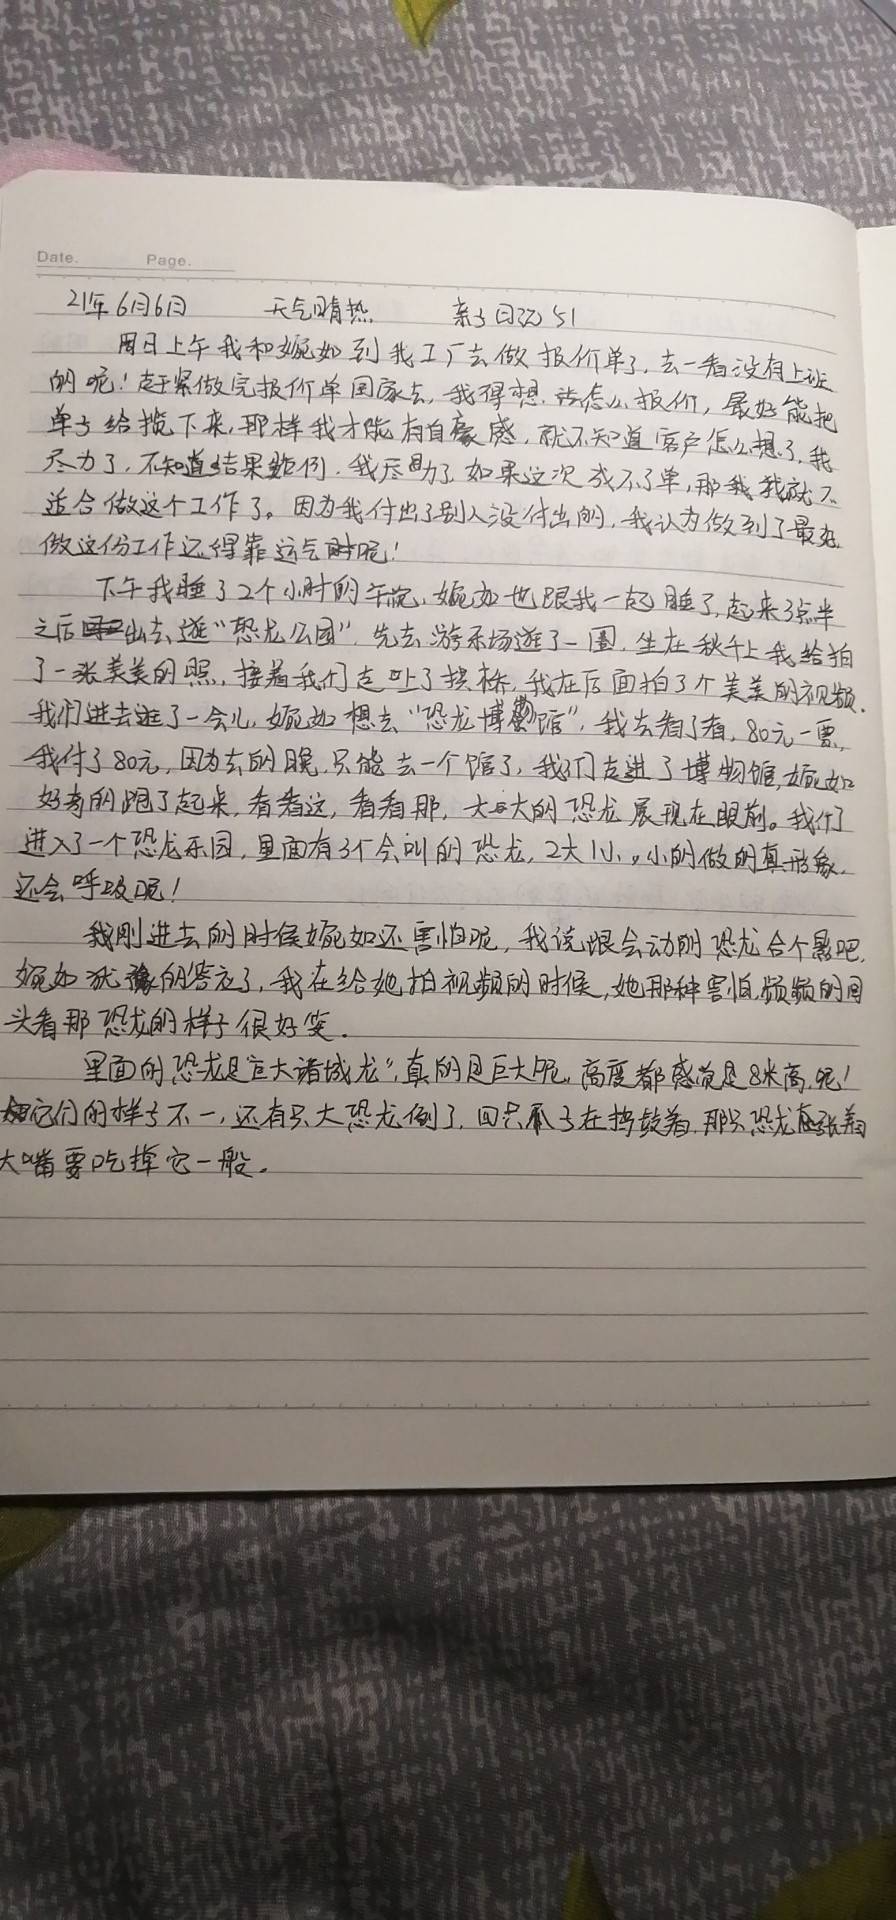 Date. Page.
21年6月6日 天气晴热 亲子日记51
周日上午我和婉如到我工厂去做报价单了,去一看没有上班
的呢!赶紧做完报价单回家去,我得想.该怎么报价,最好能把
单子给揽下来,那样我才能有自豪感,就不知道客户怎么想了,我
尽力了,不知道结果如何.我尽力了,如果这次成不了单,那我我就不
适合做这个工作了。因为我付出了别人没付出的,我认为做到了最好
做这份工作还得靠运气呢!
下午我睡了2个小时的午觉,婉如也跟我一起睡了,起来3点半
之后出去逛“恐龙公园”,先去游乐场逛了一圈,坐在秋千上我给拍
了一张美美的照,接着我们走上了拱桥,我在后面拍了个美美的视频.
我们进去逛了一会儿,婉如想去“恐龙博物馆”,我去看了看,80元一票,
我付了80元,因为去的晚,只能去一个馆了,我们走进了博物馆,婉如
好奇的跑了起来,看看这,看看那,大大的恐龙展现在眼前。我们
进入了一个恐龙乐园,里面有3个会叫的恐龙,2大1小,小的做的真形象,
还会呼吸呢!
我刚进去的时候婉如还害怕呢,我说跟会动的恐龙合个影吧,
婉如犹豫的答应了,我在给她拍视频的时候,她那种害怕,频频的回
头看那恐龙的样子很好笑.
里面的恐龙是“巨大诸城龙”,真的是巨大呢,高度都感觉是8米高呢!
它们的样子不一,还有只大恐龙倒了,四只爪子在挣鼓着,那只恐龙张着
大嘴要吃掉它一般.